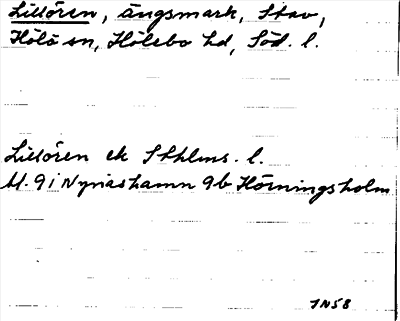 Lillören, ängsmark, Stav,
Hölö sn, Hölebo hd, Söd. l.
Lillören ek Sthlms. l.
Bl. 9i Nynäshamn 9b Hörningsholm
IN58